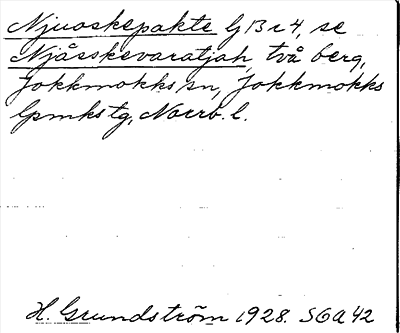 Njuoskepakte G13 r 4, se
Njåsskevaratjah, två berg,
Jokkmokks sn, Jokkmokks
lpmkstg, Norrb. l.
H. Grundström 1928. SGA 42